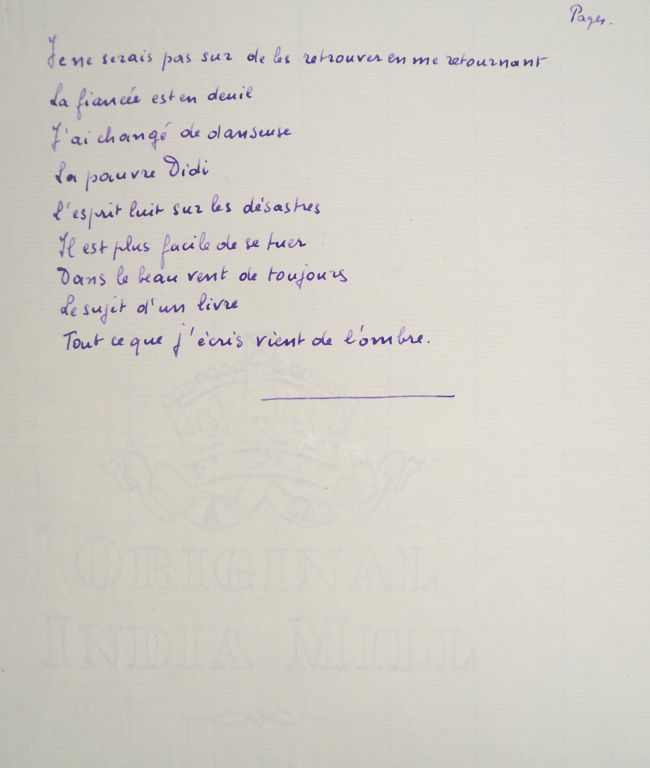 Pages.
Je ne serais pas sur de les retrouver en me retournant
La fiancée est en deuil
J'ai changé de danseuse
La pauvre Didi
L'esprit luit sur les désastres
Il est plus facile de se tuer
Dans le beau vent de toujours
Le sujet d'un livre
Tout ce que j'écris vient de l'ombre.
ORIGINAL
INDIA MILL